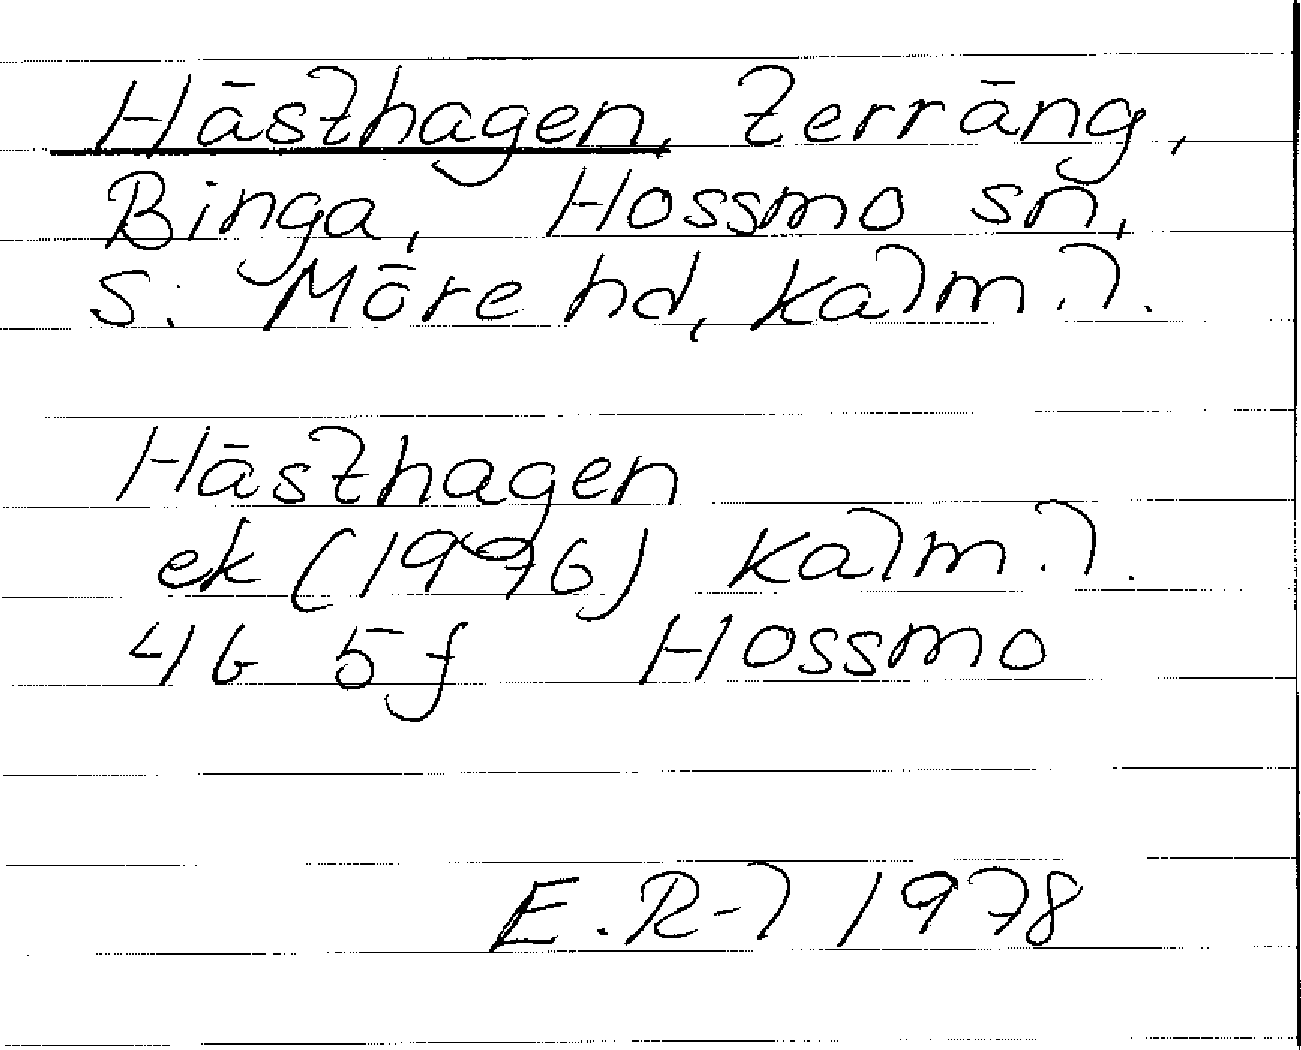 Hästhagen, terräng,
Binga, Hossmo sn,
S. Möre hd, Kalm. l.
Hästhagen
ek (1976) Kalm. l.
4G 5f Hossmo
E. R-l 1978